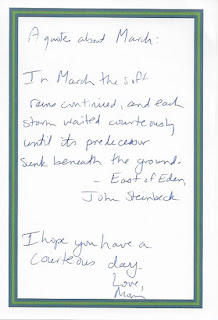 A quote about March:
In March the soft
rains continued, and each
storm waited courteously
until its predecessor
sunk beneath the ground.
- East of Eden,
John Steinbeck
I hope you have a
courteous day.
Love,
Mom